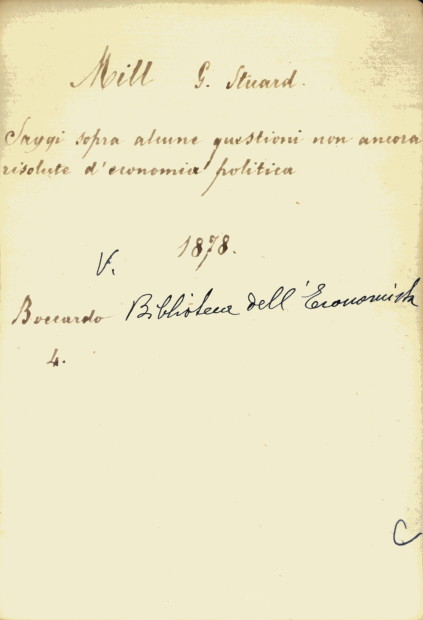 Mill G. Stuard.
Saggi sopra alcune questioni non ancora
risolute d'economia politica
1878.
V.
Boccardo Biblioteca dell'Economista
4.
C